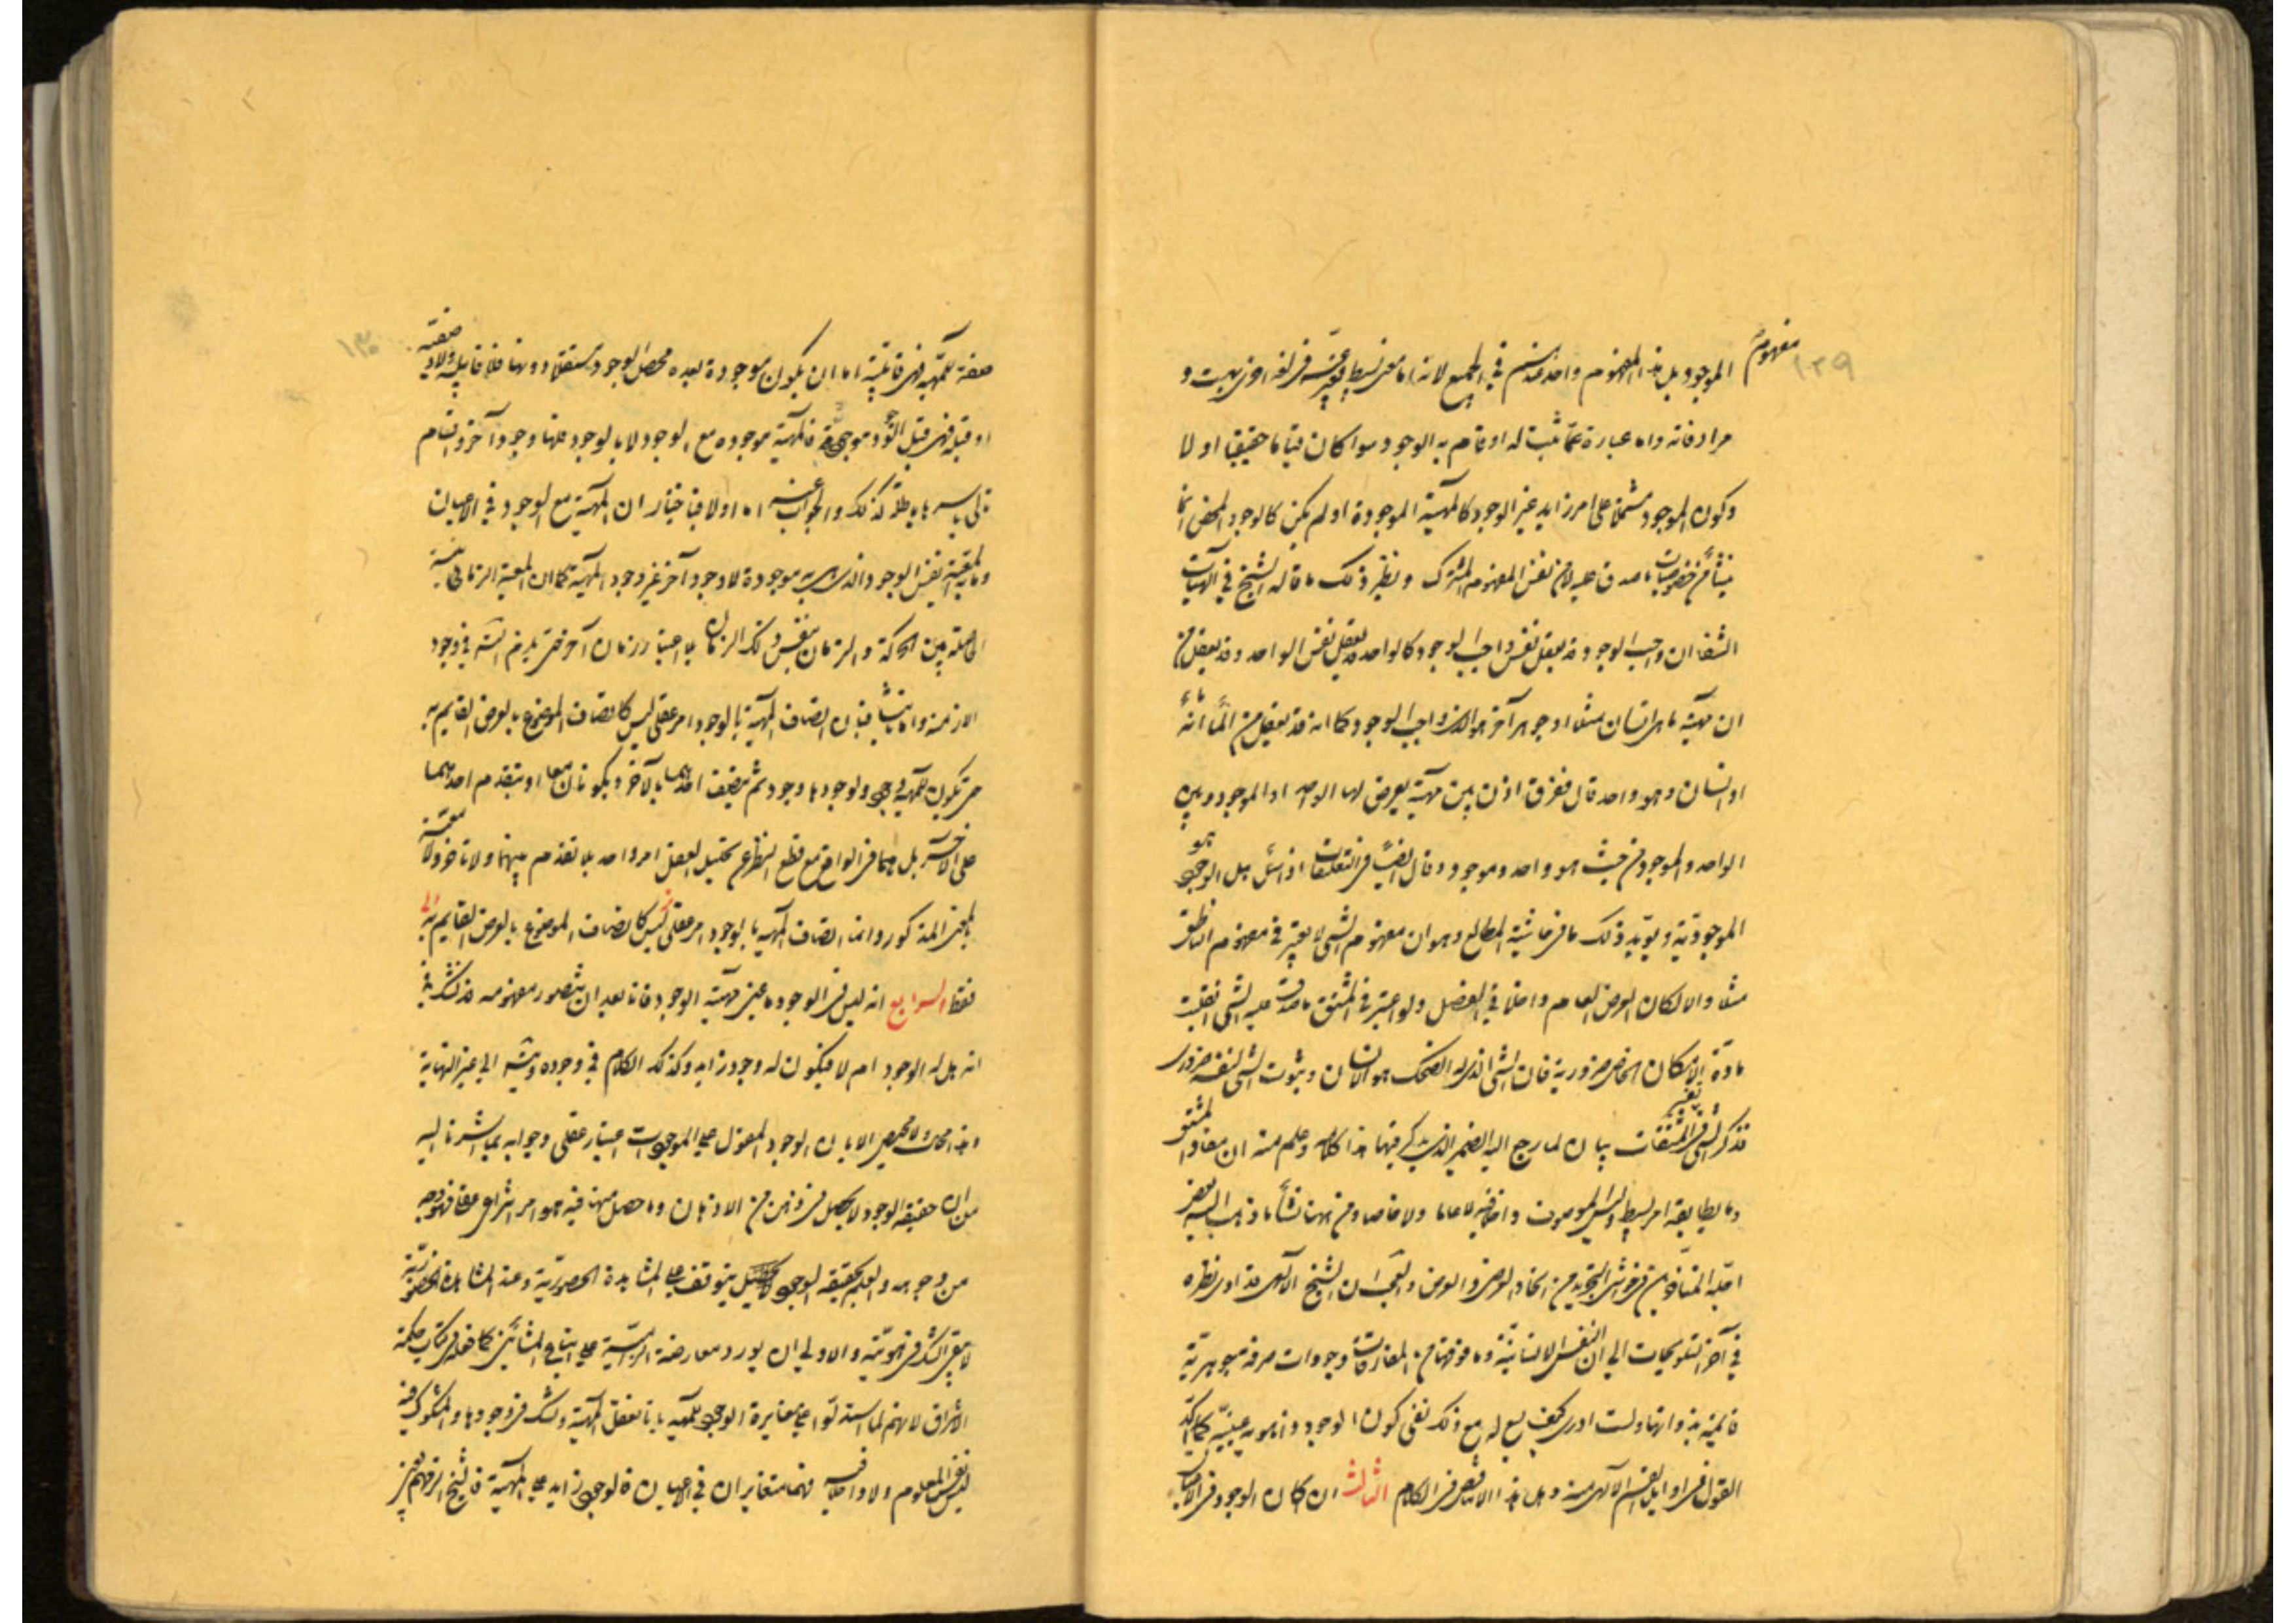 ١٢٩
مفهوم الموجود بل هذا المفهوم واحد عندهم في الجميع لانه اما معنى بسيط يعبر عنه في لغة الفرس بهست و
مرادفاته واما عبارة عما ثبت له او قام به الوجود سواء كان قياما حقيقيا او لا
وكون الموجود مشتملا على امر زايد غير الوجود كالمهية الموجودة او لم يكن كالوجود المحض انما
ينشأ من خصوصيات ما صدق عليه لا من نفس المفهوم المشترك ونظير ذلك ما قاله الشيخ في الهيات
الشفا ان واجب الوجود قد يعقل نفس واجب الوجود كالواحد قد يعقل نفس الواحد وقد يعقل من
ان مهية ما هي انسان مثلا او جوهر آخر هو الذي واجب الوجود كما انه قد يعقل من الماء انه ماء
او انسان وهو واحد قال ففرق اذن بين مهية يعرض لها الواحد او الموجود وبين
الواحد والموجود من حيث هو واحد وموجود وقال ايضا في التعليقات اذا سئل هل الوجود هو
الموجودية ويؤيد ذلك ما في حاشية المطالع وهو ان مفهوم الشيء لا يعتبر في مفهوم الناطق
مثلا والا لكان العرض العام داخلا في الفصل ولو اعتبر في المشتق ما صدق عليه الشيء انقلبت
مادة الامكان الخاص ضرورية فان الشيء الذي له الضحك هو الانسان وثبوت الشيء لنفسه ضروري
فذكر الشيء في تفسير المشتقات بيان لما رجع اليه الضمير الذي يذكر فيها هذا كلامه وعلم منه ان مفاد المشتق
وما يطابقه امر بسيط وليس الموصوف داخلا فيه لا عاما ولا خاصا ومن ههنا نشأ ما ذهب اليه بعض
اجلة المتأخرين في حواشي التجريد من اتحاد العرض والعرضي والعجب ان الشيخ الالهي قد ادى نظره
في آخر التلويحات الى ان النفس الانسانية وما فوقها من المفارقات وجودات صرفة جوهرية
قائمة بذواتها ولست ادري كيف يسع له مع ذلك نفي كون الوجود ذا هوية عينية كما اكد
القول في اوايل القسم الالهي منه وهل هذا الا تناقض في الكلام الثالث ان كان الوجود في الاعيان
١٣٠
صفة للمهية فهي قابلية اما ان يكون موجودة بعده فحصل الوجود مستقلا دونها فلا قابلية ولا صفتية
او قبله فهي قبل الوجود موجودة او معه فالمهية موجودة مع الوجود لا بالوجود فلها وجود آخر واقسام
تالي باسرها باطلة كذلك والجواب عنه اما اولا فباختيار ان المهية مع الوجود في الاعيان
وما به المعية نفس الوجود الذي هي به موجودة لا وجود آخر غير وجود المهية كما ان المعية الزمانية
الحاصلة بين الحركة والزمان بنفس ذلك الزمان بلا اعتبار زمان آخر حتى يلزم التسلسل في وجود
الازمنة واما ثانيا فبان اتصاف المهية بالوجود امر عقلي ليس كاتصاف الموضوع بالعرض القايم به
حتى يكون للمهية وجود ولوجودها وجود ثم يتصف احدهما بالآخر ويكونان معا او يتقدم احدهما
على الآخر بل هما في الواقع مع قطع النظر عن تحليل العقل امر واحد بلا تقدم بينهما ولا تاخر ولا معية
بالمعنى المذكور وانما اتصاف المهية بالوجود امر عقلي ليس كاتصاف الموضوع بالعرض القايم به
فقط الرابع انه ليس في الوجود ما عين مهية الوجود فانا بعد ان نتصور مفهومه قد نشك في
انه هل له الوجود ام لا فيكون له وجود زايد وكذلك الكلام في وجوده ويتسلسل الى غير النهاية
وهذا محال ولا محيص الا بان الوجود المقول على الموجودات اعتبار عقلي وجوابه بما اشرنا اليه
من ان حقيقة الوجود لا يحصل في ذهن من الاذهان وما حصل منها فيه هو امر انتزاعي عقلي فهو وجه
من وجوهه والعلم بحقيقة الوجود يتوقف على المشاهدة الحضورية وعند المشاهدة الحضورية
لا يبقى الشك في هويته والاولى ان يورد معارضة الزامية على اتباع المشائين كما فعله في كتاب حكمة
الاشراق لانهم لما استدلوا على مغايرة الوجود للمهية بانا نعقل المهية ونشك في وجودها والمشكوك فيه
ليس نفس المعلوم ولا داخلا فيه فهما متغايران في الاعيان فالوجود زايد على المهية فالشيخ الزمهم بعين